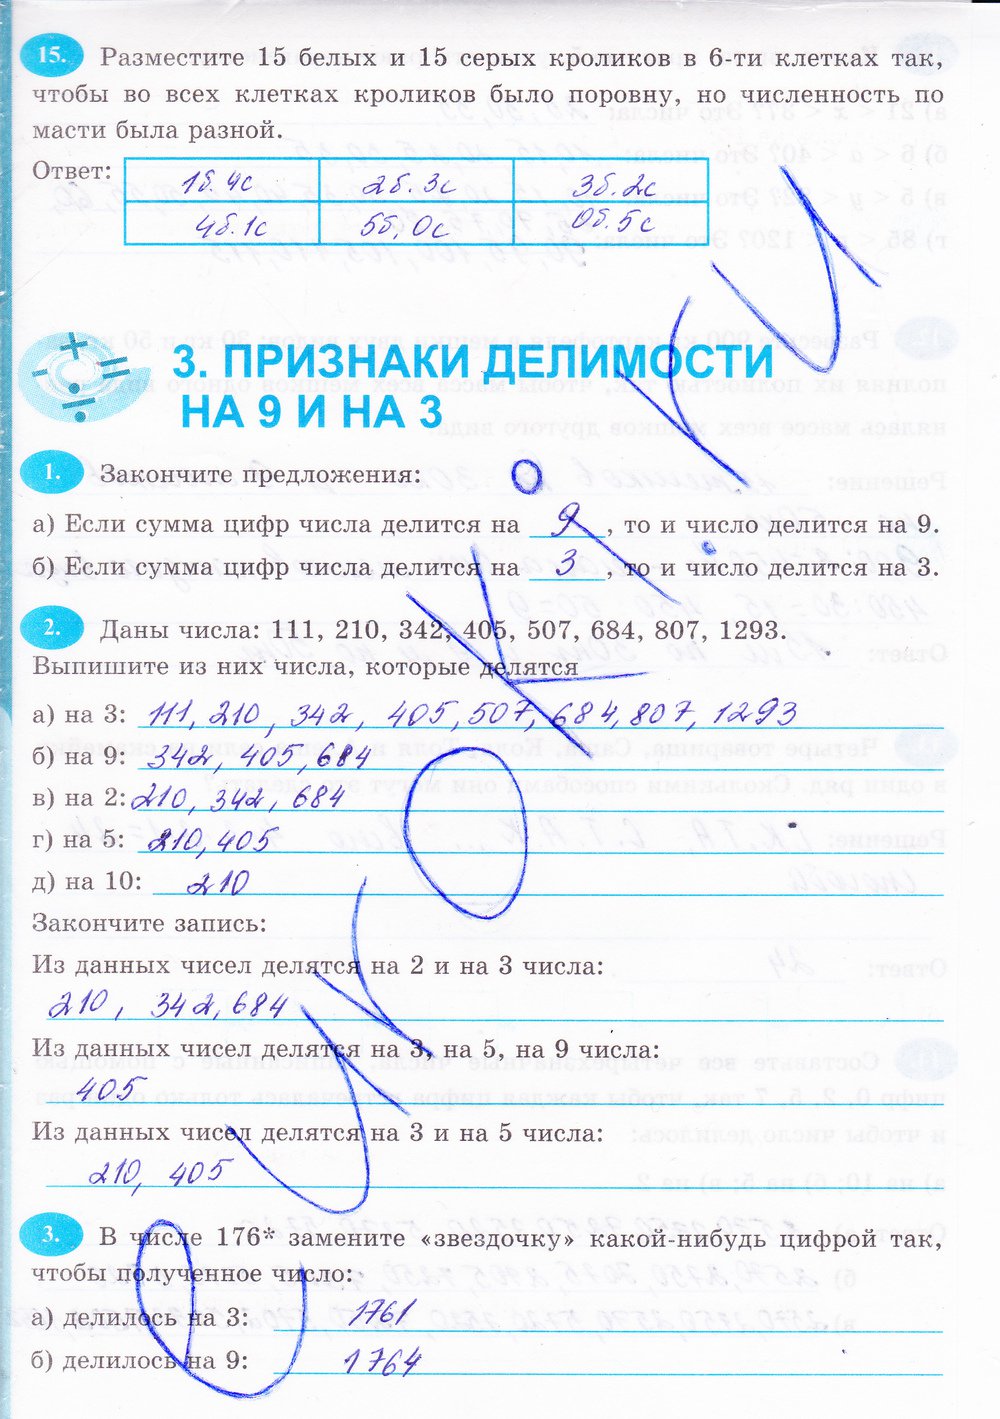 15. Разместите 15 белых и 15 серых кроликов в 6-ти клетках так,
чтобы во всех клетках кроликов было поровну, но численность по
масти была разной.
Ответ: 1б.4с 2б.3с 3б.2с
4б.1с 5б,0с 0б.5с
3. ПРИЗНАКИ ДЕЛИМОСТИ
НА 9 И НА 3
1. Закончите предложения:
а) Если сумма цифр числа делится на 9, то и число делится на 9.
б) Если сумма цифр числа делится на 3, то и число делится на 3.
2. Даны числа: 111, 210, 342, 405, 507, 684, 807, 1293.
Выпишите из них числа, которые делятся
а) на 3: 111, 210, 342, 405, 507, 684, 807, 1293
б) на 9: 342, 405, 684
в) на 2: 210, 342, 684
г) на 5: 210, 405
д) на 10: 210
Закончите запись:
Из данных чисел делятся на 2 и на 3 числа:
210, 342, 684
Из данных чисел делятся на 3, на 5, на 9 числа:
405
Из данных чисел делятся на 3 и на 5 числа:
210, 405
3. В числе 176* замените «звездочку» какой-нибудь цифрой так,
чтобы полученное число:
а) делилось на 3: 1761
б) делилось на 9: 1764